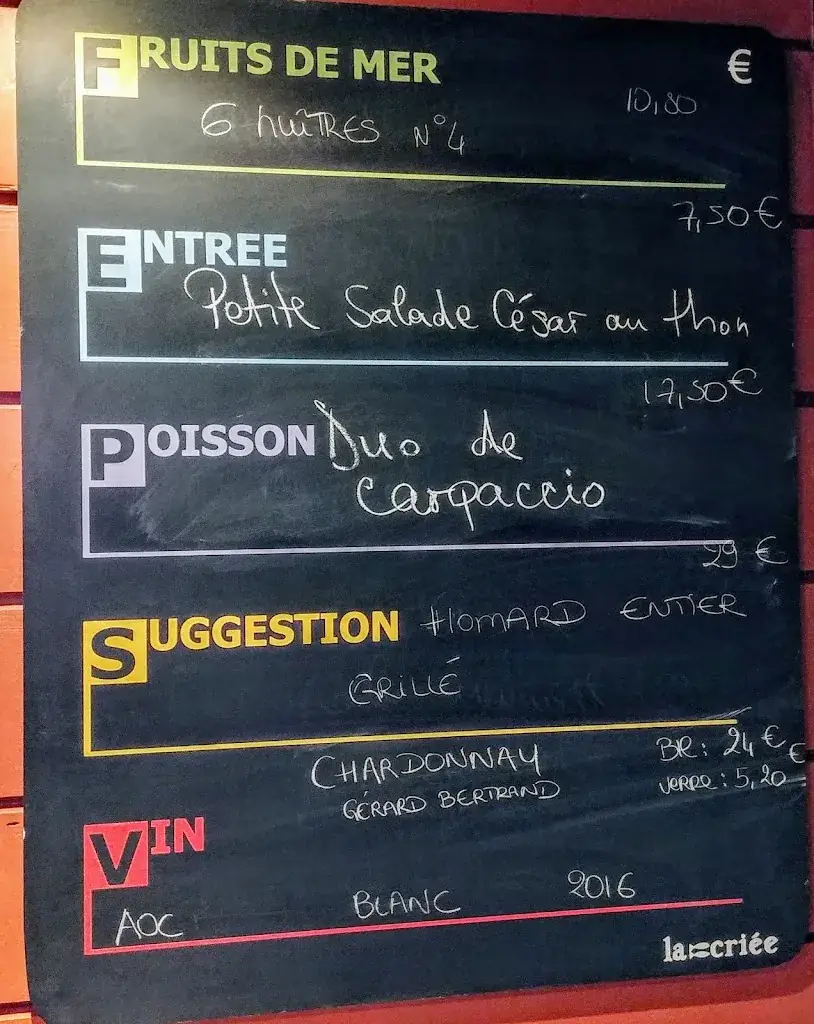 FRUITS DE MER €
6 huîTRES N°4 10,80
7,50€
ENTREE
Petite Salade César au thon
17,50€
POISSON Duo de
carpaccio
29 €
SUGGESTION HOMARD ENTIER
GRILLÉ
CHARDONNAY BR: 24 €
GÉRARD BERTRAND verre: 5,20 €
VIN
AOC BLANC 2016
la criée